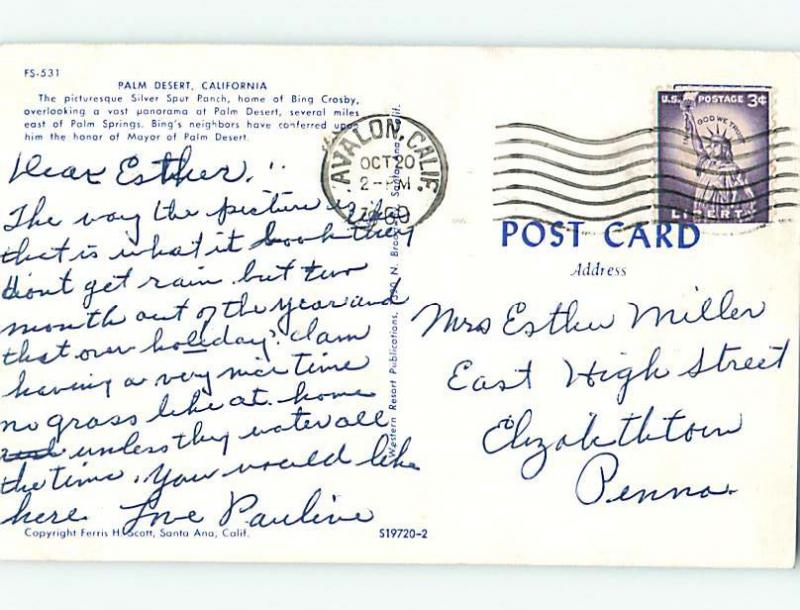 FS-531
PALM DESERT, CALIFORNIA
The picturesque Silver Spur Ranch, home of Bing Crosby,
overlooking a vast panorama at Palm Desert, several miles
east of Palm Springs. Bing's neighbors have conferred upon
him the honor of Mayor of Palm Desert.
Dear Esther,
The way the picture is
that is what it look they
dont get rain but two
month out of the year and
that over holiday. I am
having a very nice time
no grass like at home
unless they water all
the time. You would like
here. Love Pauline
Copyright Ferris H. Scott, Santa Ana, Calif.
S19720-2
Western Resort Publications, N. Santa Ana, Calif.
AVALON, CALIF.
OCT 20
2-PM
U.S. POSTAGE 3¢
IN GOD WE TRUST
LIBERTY
POST CARD
Address
Mrs Esther Miller
East High Street
Elizabethtown
Penna.